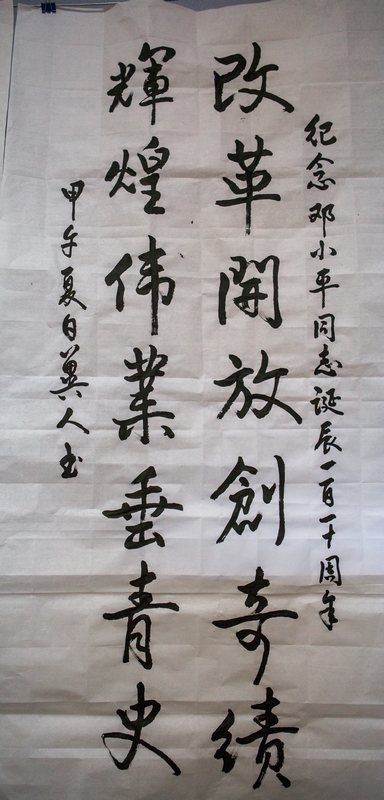 纪念邓小平同志诞辰一百一十周年
改革開放創奇績
輝煌伟業垂青史
甲午夏日冀人书